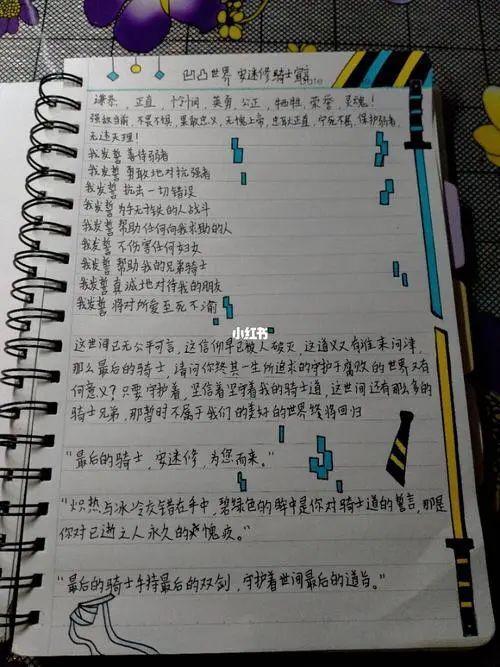 凹凸世界 安迷修骑士宣言
谦恭，正直，怜悯，英勇，公正，牺牲，荣誉，灵魂！
强敌当前，不畏不惧，果敢忠义，无愧上帝，忠耿正直，宁死不屈，保护弱者，
无违天理！
我发誓 善待弱者
我发誓 勇敢地对抗强者
我发誓 抗击一切错误
我发誓 为手无寸铁的人战斗
我发誓 帮助任何向我求助的人
我发誓 不伤害任何妇女
我发誓 帮助我的兄弟骑士
我发誓 真诚地对待我的朋友
我发誓 将对所爱至死不渝
小红书
这世间已无公平可言，这信仰早已被人破灭，这道义又有谁来问津，
那么最后的骑士，请问你终其一生所追求的守护于腐败的世界又有
何意义？只要守护着，坚信着坚守着我的骑士道，这世间还有那么多的
骑士兄弟，那暂时不属于我们的美好的世界终将回归
“最后的骑士，安迷修，为您而来。”
“炽热与冰冷交错在手中，碧绿色的眸中是你对骑士道的誓言，那是
你对已逝之人永久的愧疚。”
“最后的骑士手持最后的双剑，守护着世间最后的道旨。”